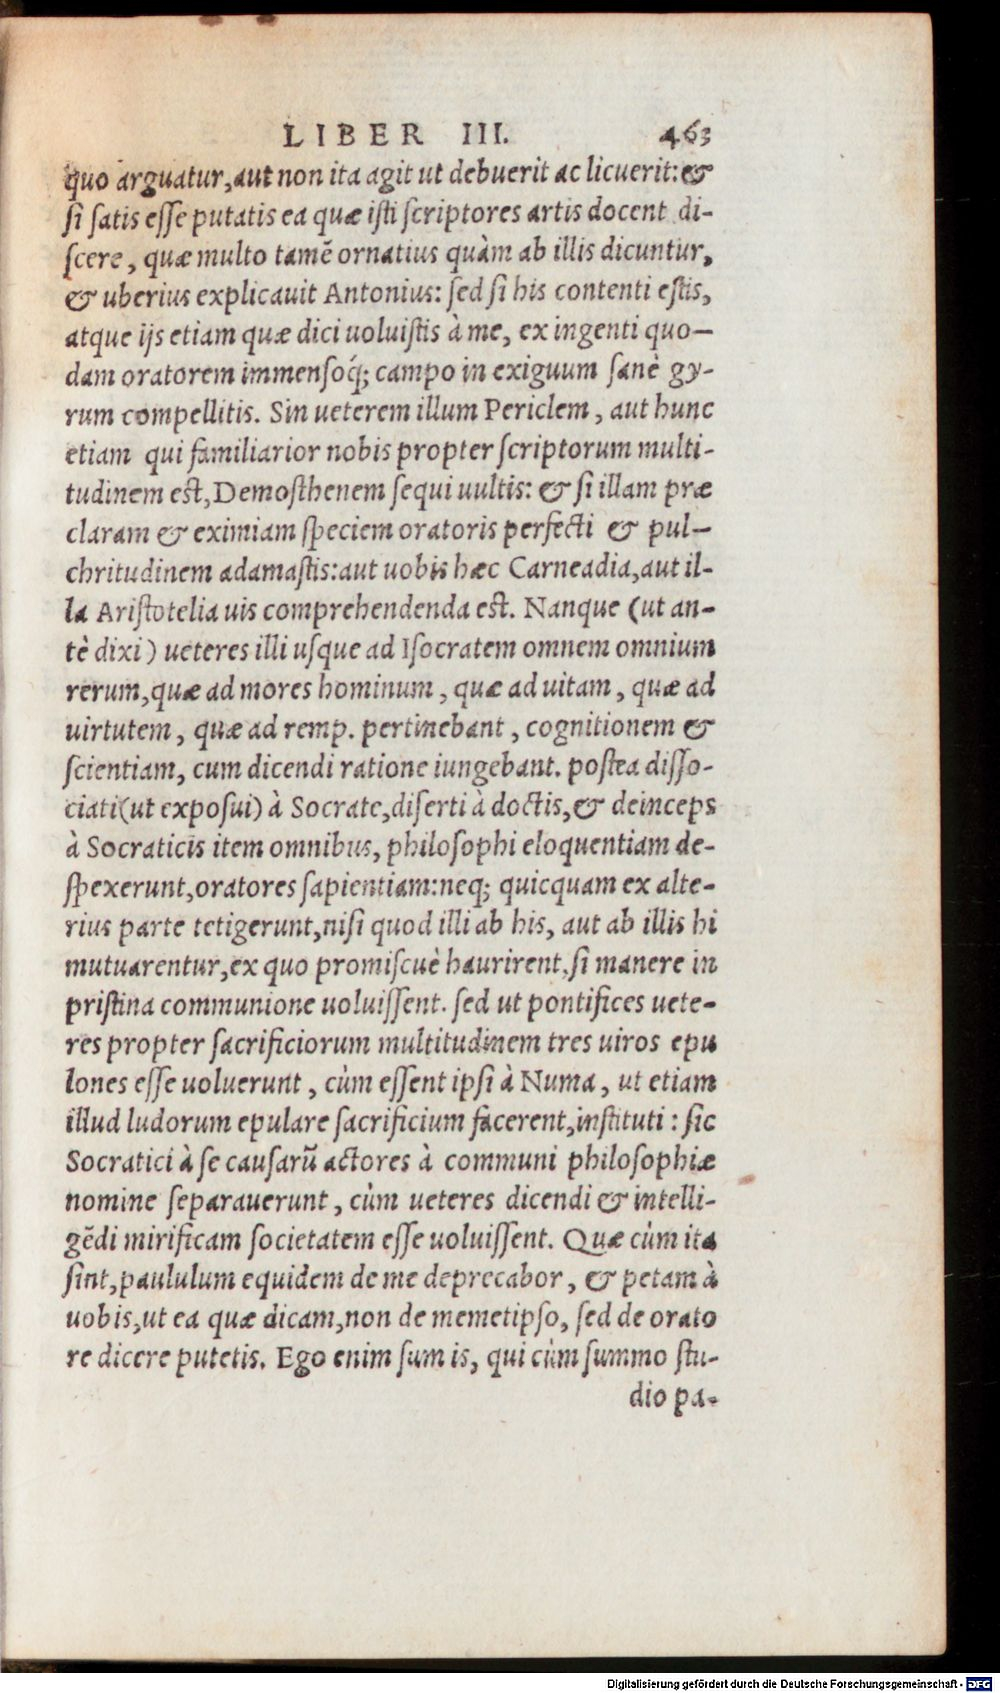 LIBER III. 463
quo arguatur,aut non ita agit ut debuerit ac licuerit:&
si satis esse putatis ea quæ isti scriptores artis docent di-
scere, quæ multo tamē ornatius quàm ab illis dicuntur,
& uberius explicauit Antonius: sed si his contenti estis,
atque ijs etiam quæ dici uoluistis à me, ex ingenti quo-
dam oratorem immensoq́; campo in exiguum sanè gy-
rum compellitis. Sin ueterem illum Periclem, aut hunc
etiam qui familiarior nobis propter scriptorum multi-
tudinem est,Demosthenem sequi uultis: & si illam præ
claram & eximiam speciem oratoris perfecti & pul-
chritudinem adamastis:aut uobis hæc Carneadia,aut il-
la Aristotelia uis comprehendenda est. Nanque (ut an-
tè dixi) ueteres illi usque ad Isocratem omnem omnium
rerum,quæ ad mores hominum, quæ ad uitam, quæ ad
uirtutem, quæ ad remp. pertinebant, cognitionem &
scientiam, cum dicendi ratione iungebant. postea disso-
ciati(ut exposui) à Socrate,diserti à doctis,& deinceps
à Socraticis item omnibus, philosophi eloquentiam de-
spexerunt,oratores sapientiam:neq; quicquam ex alte-
rius parte tetigerunt,nisi quod illi ab his, aut ab illis hi
mutuarentur,ex quo promiscuè haurirent,si manere in
pristina communione uoluissent. sed ut pontifices uete-
res propter sacrificiorum multitudinem tres uiros epu
lones esse uoluerunt, cùm essent ipsi à Numa, ut etiam
illud ludorum epulare sacrificium facerent,instituti: sic
Socratici à se causarū actores à communi philosophiæ
nomine separauerunt, cùm ueteres dicendi & intelli-
gēdi mirificam societatem esse uoluissent. Quæ cùm ita
sint,paululum equidem de me deprecabor, & petam à
uobis,ut ea quæ dicam,non de memetipso, sed de orato
re dicere putetis. Ego enim sum is, qui cùm summo stu-
dio pa-
Digitalisierung gefördert durch die Deutsche Forschungsgemeinschaft - DFG